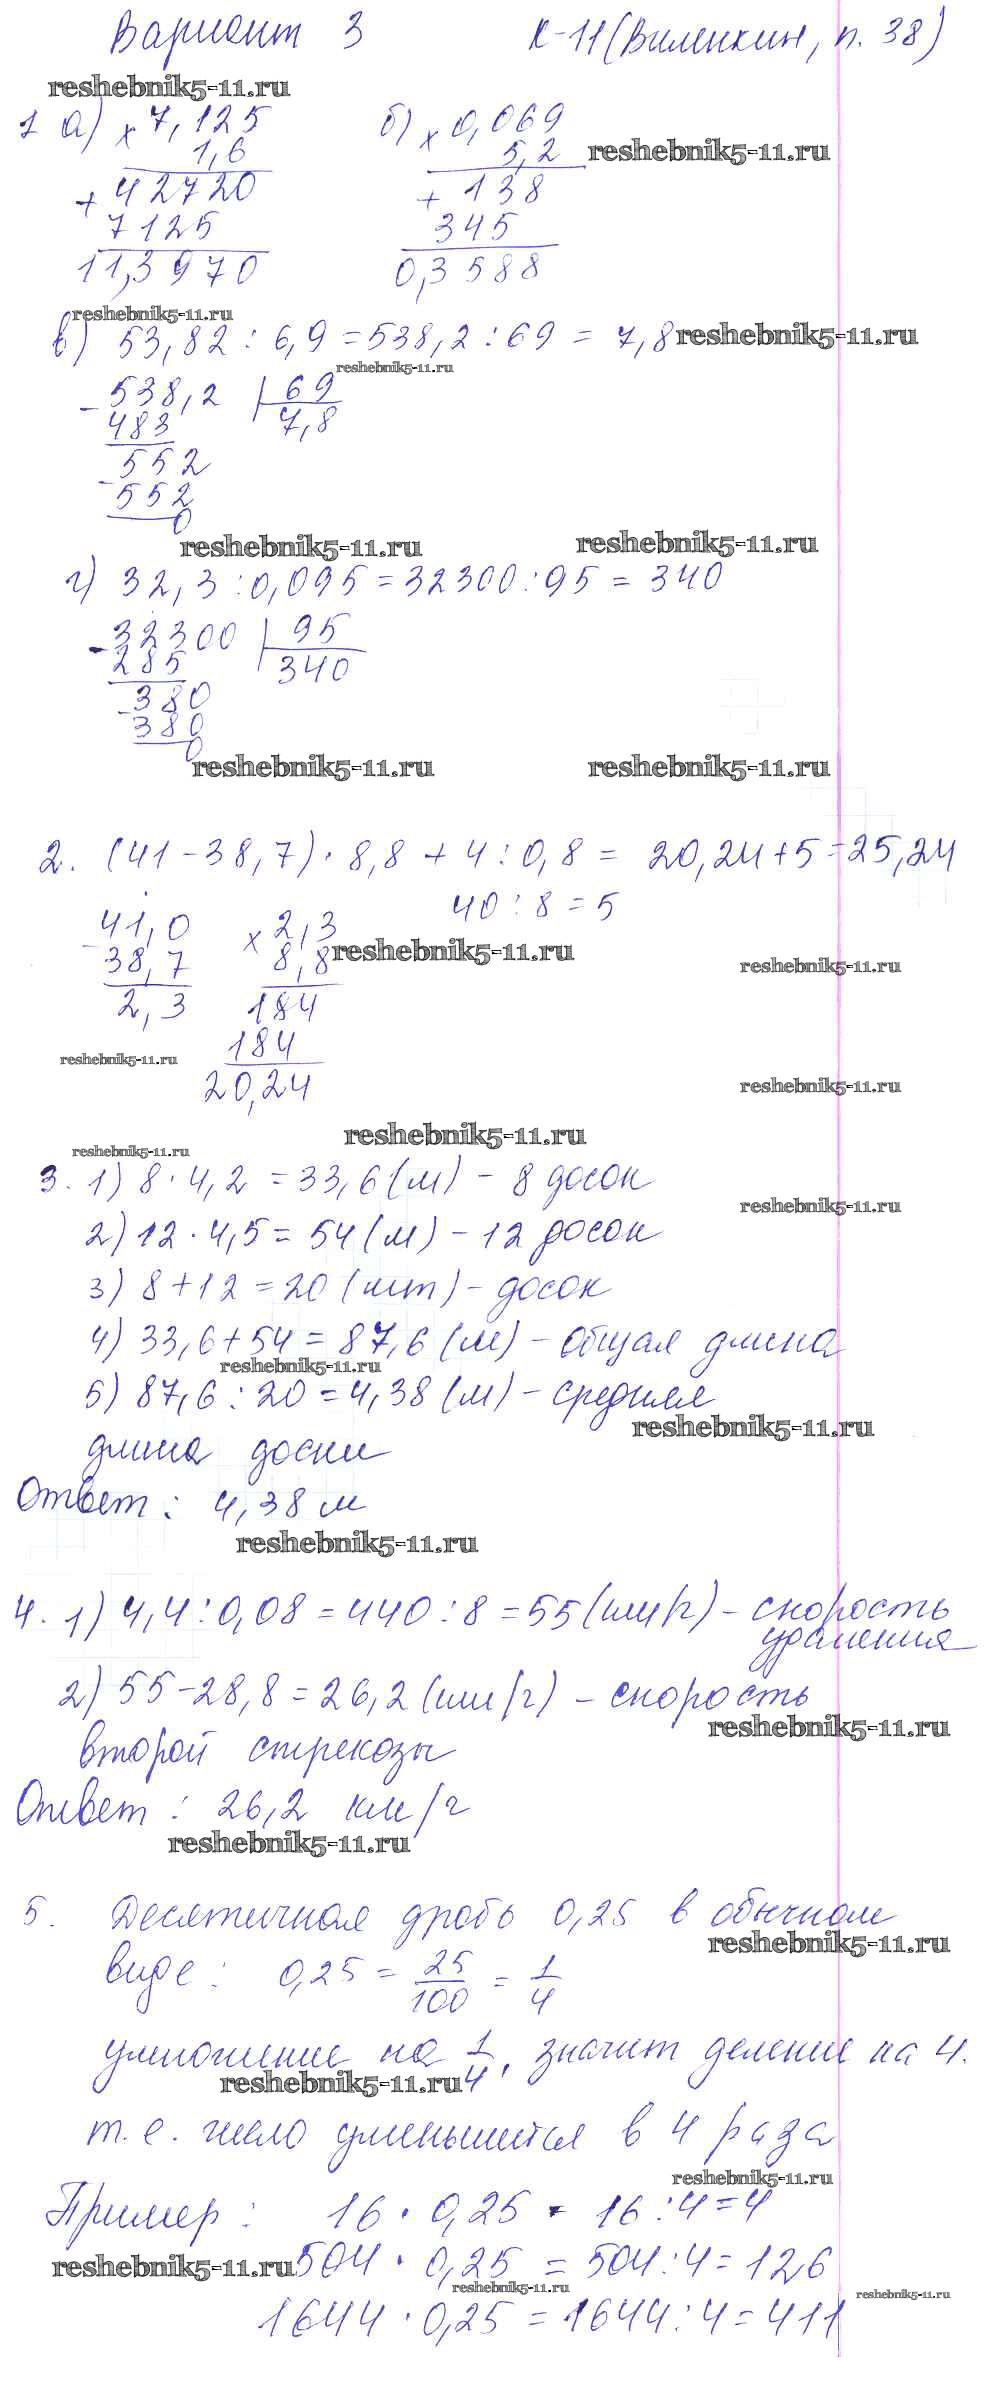 Вариант 3 К-11 (Виленкин, п. 38)
reshebnik5-11.ru
1 а) × 7,125 б) × 0,069
1,6 5,2 reshebnik5-11.ru
+ 42720 + 138
7125 345
11,3970 0,3588
reshebnik5-11.ru
в) 53,82 : 6,9 = 538,2 : 69 = 7,8 reshebnik5-11.ru
reshebnik5-11.ru
- 538,2 | 69
483 7,8
- 552
552
0
reshebnik5-11.ru reshebnik5-11.ru
г) 32,3 : 0,095 = 32300 : 95 = 340
- 32300 | 95
285 340
- 380
380
0
reshebnik5-11.ru reshebnik5-11.ru
2. (41 - 38,7) · 8,8 + 4 : 0,8 = 20,24 + 5 = 25,24
40 : 8 = 5
- 41,0 × 2,3
38,7 8,8 reshebnik5-11.ru
reshebnik5-11.ru
2,3 184
184
reshebnik5-11.ru
20,24 reshebnik5-11.ru
reshebnik5-11.ru
reshebnik5-11.ru
3. 1) 8 · 4,2 = 33,6 (м) - 8 досок
reshebnik5-11.ru
2) 12 · 4,5 = 54 (м) - 12 досок
3) 8 + 12 = 20 (шт) - досок
4) 33,6 + 54 = 87,6 (м) - общая длина
reshebnik5-11.ru
5) 87,6 : 20 = 4,38 (м) - средняя
reshebnik5-11.ru
длина доски
Ответ: 4,38 м
reshebnik5-11.ru
4. 1) 4,4 : 0,08 = 440 : 8 = 55 (км/ч) - скорость
удаления
2) 55 - 28,8 = 26,2 (км/ч) - скорость
reshebnik5-11.ru
второй стрекозы
Ответ: 26,2 км/ч
reshebnik5-11.ru
5. Десятичная дробь 0,25 в обычном
reshebnik5-11.ru
виде: 0,25 = 25/100 = 1/4
умножение на 1/4, значит деление на 4.
reshebnik5-11.ru
т.е. число уменьшится в 4 раза
reshebnik5-11.ru
Пример: 16 · 0,25 = 16 : 4 = 4
reshebnik5-11.ru 504 · 0,25 = 504 : 4 = 126
reshebnik5-11.ru reshebnik5-11.ru
1644 · 0,25 = 1644 : 4 = 411